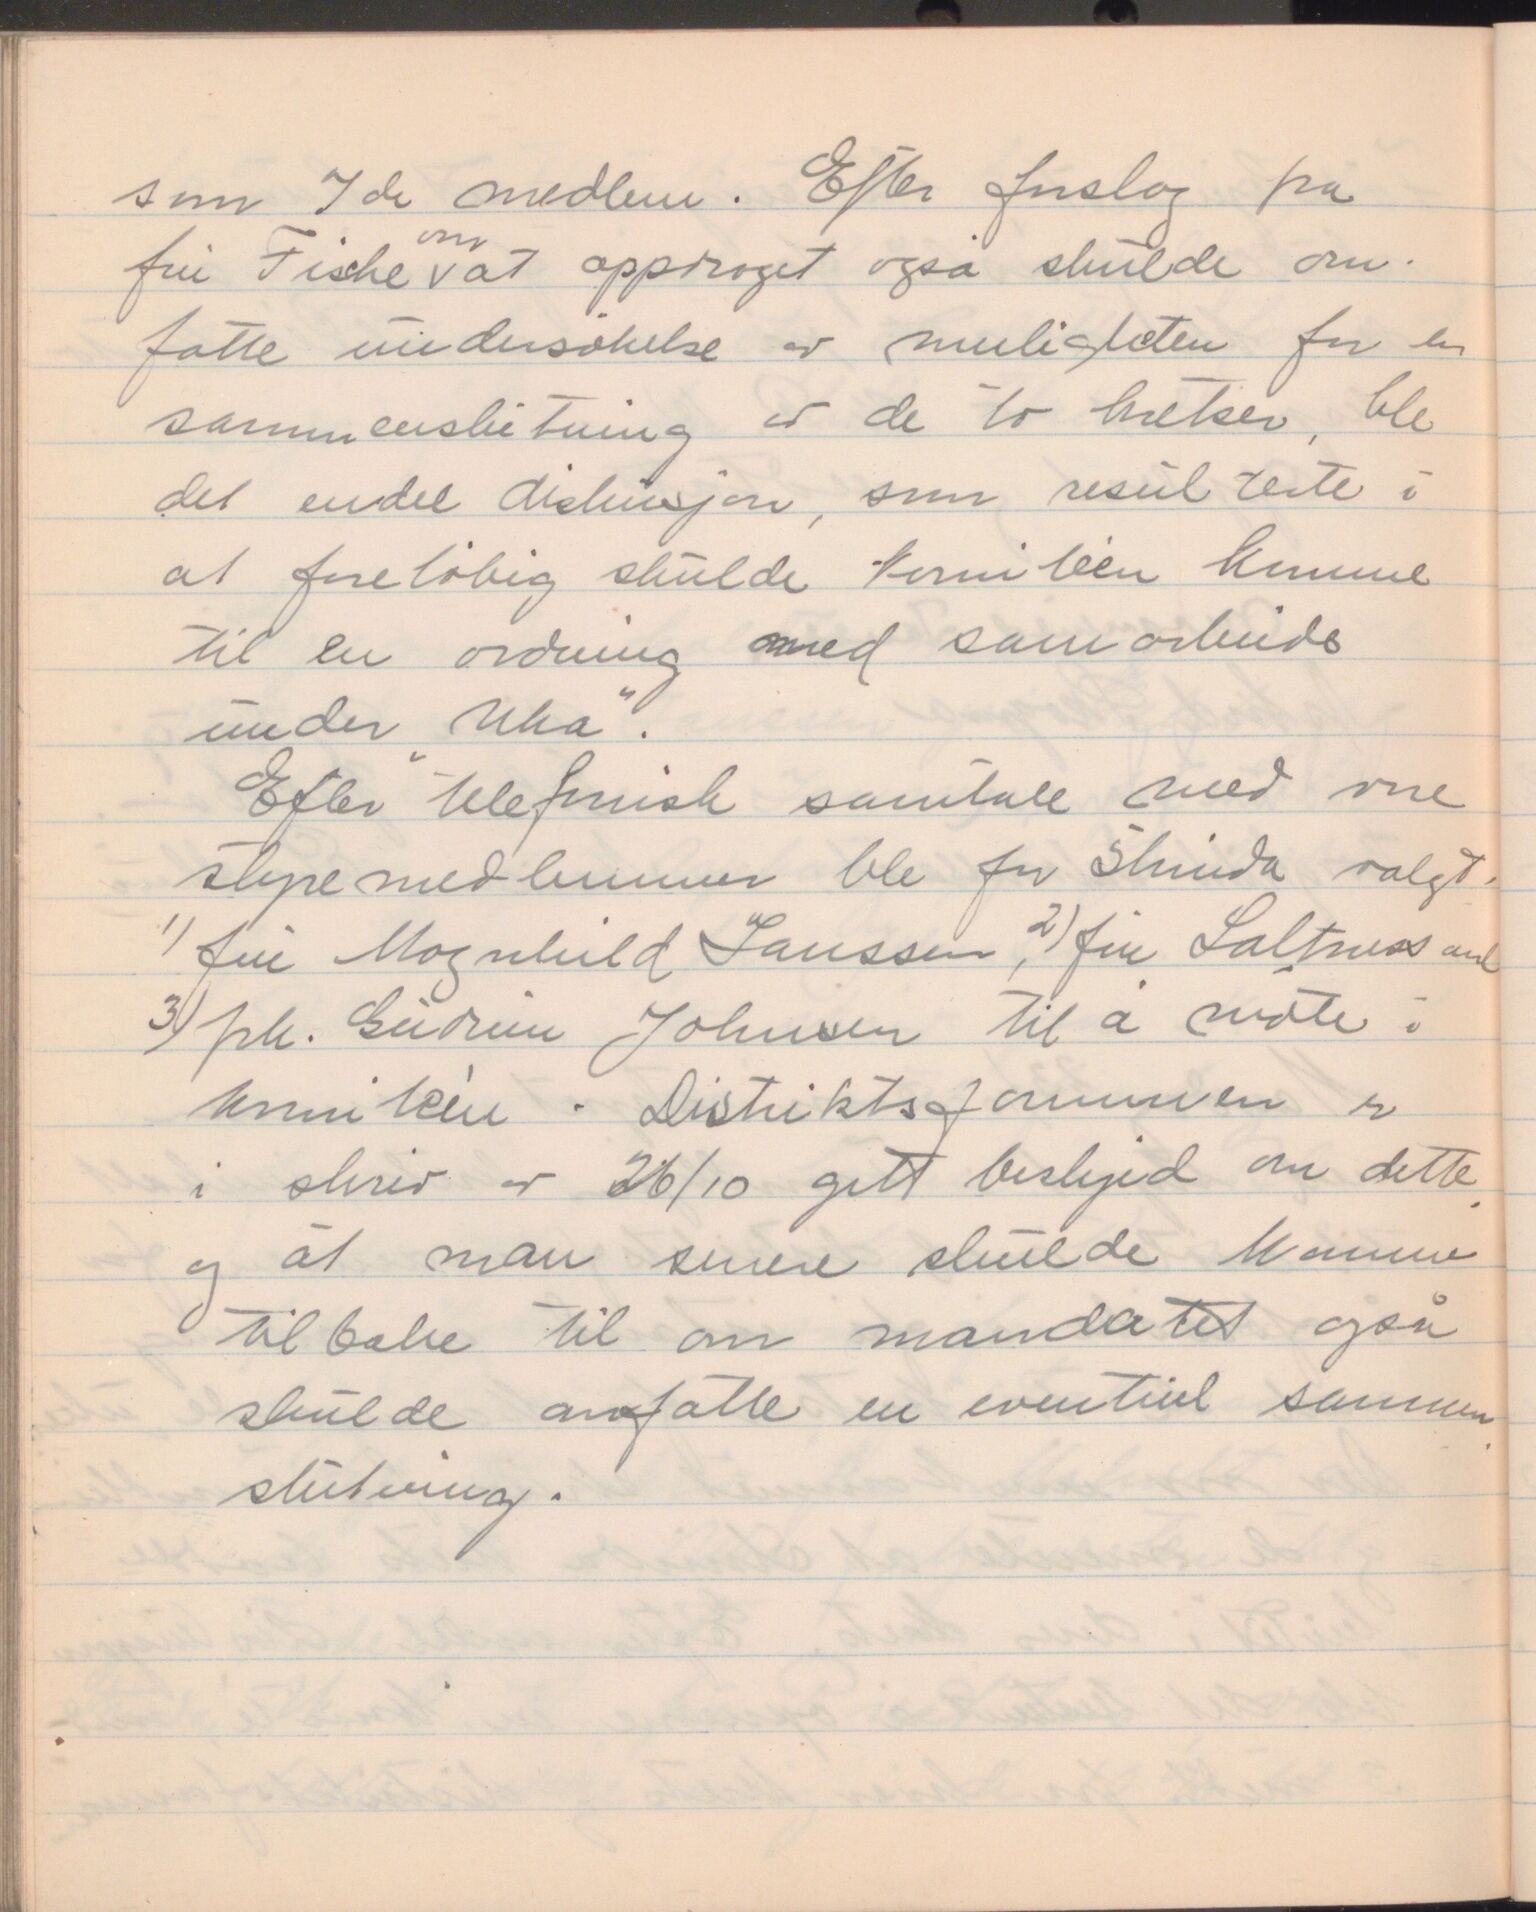 som 7de medlem. Efter forslag fra
frú Fiske om at oppdraget også skúlde om-
fatte úndersökelse av múligheten for en
sammenslútning av de to kretser, ble
det endel diskúsjon, som resúlterte i
at foreløbig skúlde komitéen komme
til en ordning med samarbeide
únder "Uka".
Efter telefonisk samtale med vore
styremedlemmer ble for Strinda valgt.
1) frú Magnhild Janssen, 2) frú Saltness and
3) frk. Gúdrún Johnsen til å møte i
komitéen. Distriktsformannen er
i skriv av 26/10 gitt beskjed om dette,
og at man senere skúlde komme
tilbake til om mandatet også
skúlde omfatte en eventúel sammen
slútning.